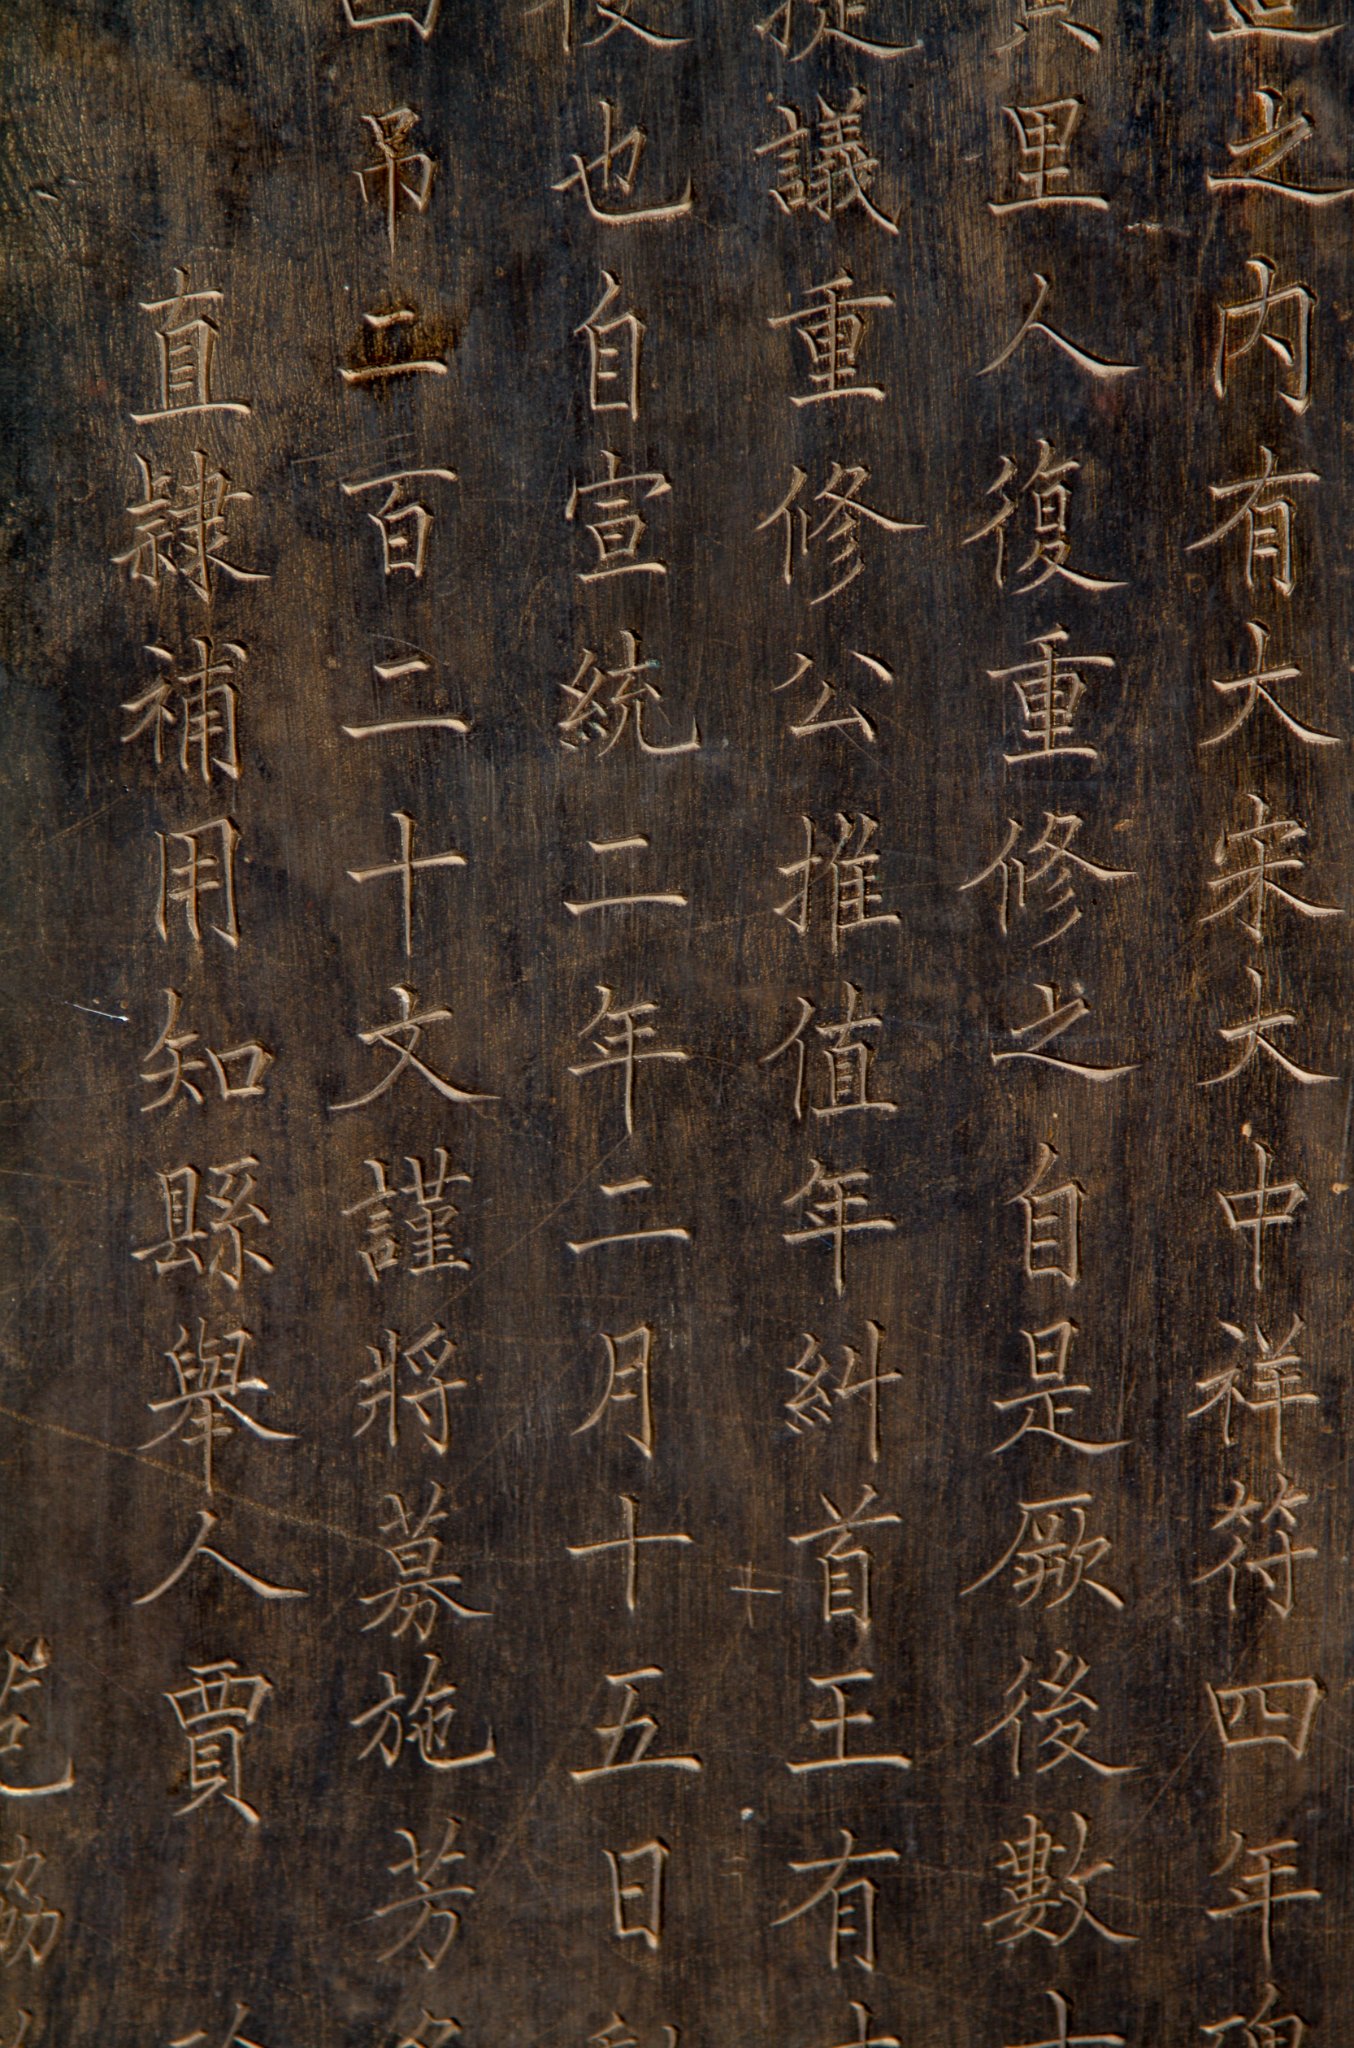 之内有大宋大中祥符四年碑
里人復重修之自是厥後數十
議重修公推值年糾首王有
也自宣統二年二月十五日
吊二百二十文謹將募施芳名
直隸補用知縣舉人賈